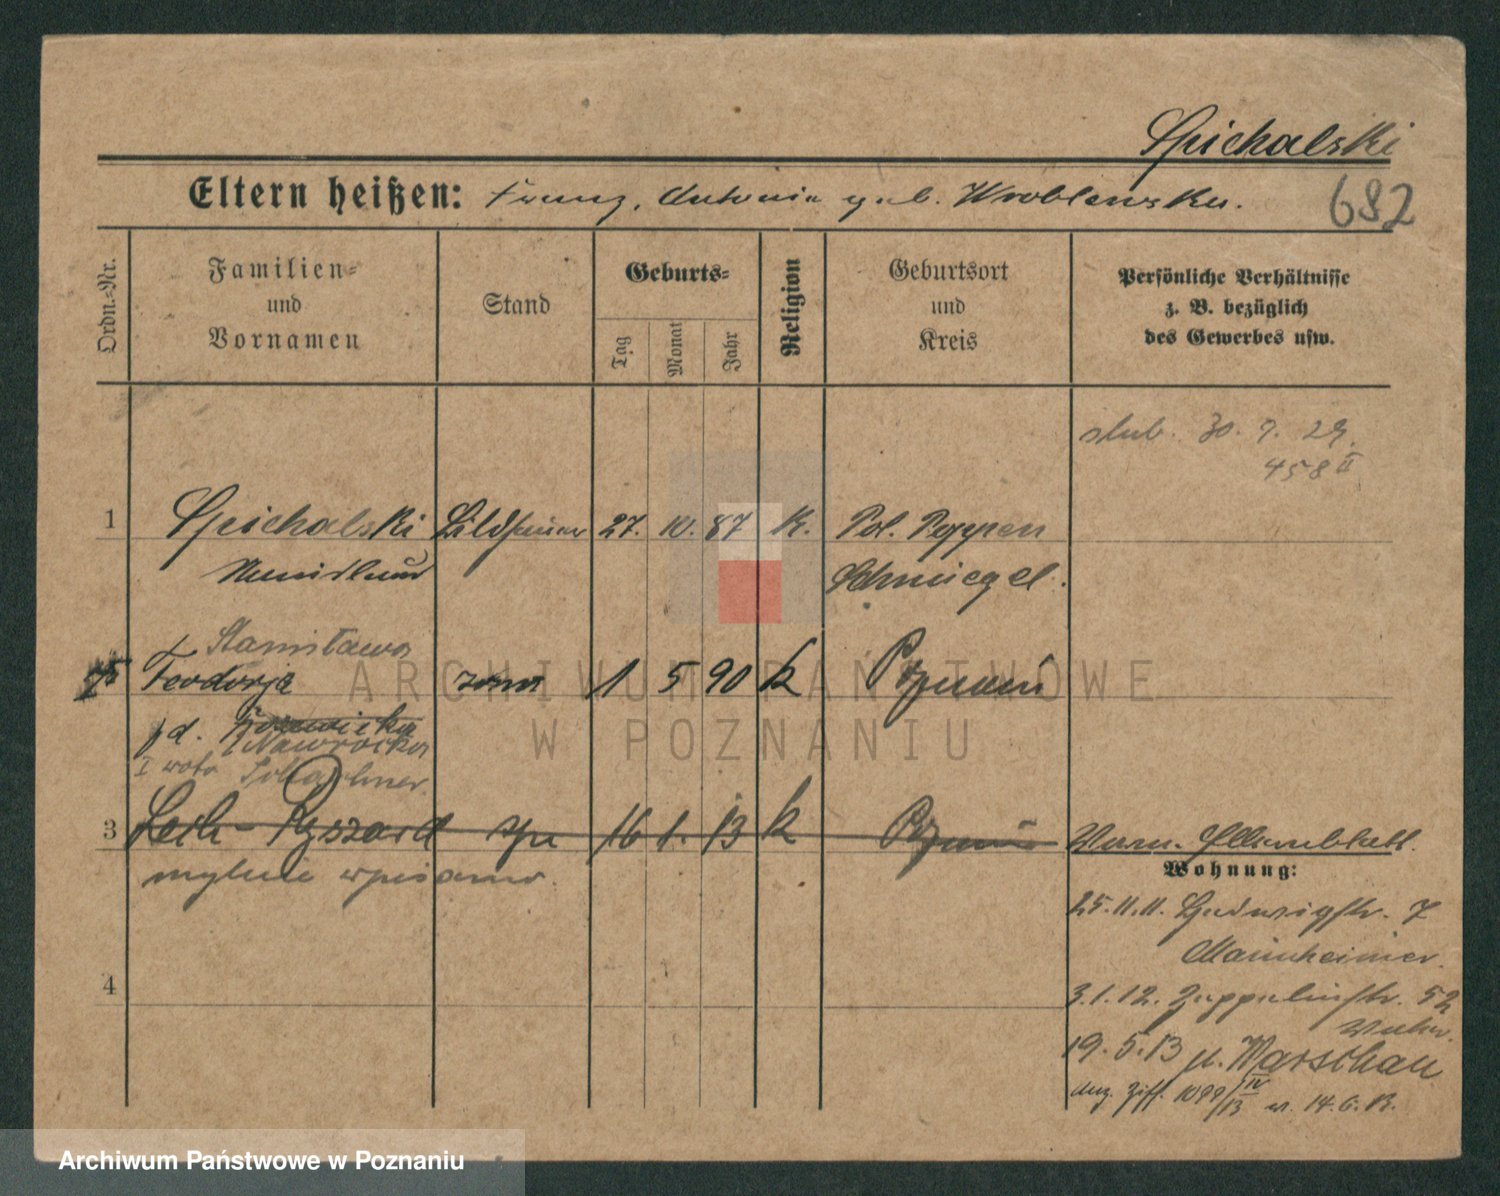 Spichalski
Eltern heißen: Franz, Antonie geb. Wroblewska.
682
Ordn.-Nr.
Familien-
und
Vornamen
Stand
Geburts-
Tag
Monat
Jahr
Religion
Geburtsort
und
Kreis
Persönliche Verhältnisse
z. B. bezüglich
des Gewerbes usw.
ślub. 30. 7. 29.
458 II
1 Spichalski Bildhauer 27. 10. 87 K. Pol. Poppen
Schmiegel.
Stanisława
Teodozja żona 1 5 90 k Poznań
Nawrocka
I voto
3 Lech-Ryszard syn 16 1. 13 k Poznań
mylnie wpisano.
Wohnung:
25.11.11. Ludwigstr. 7
Mannheimer.
4
3.1.12. Zeppelinstr. 52
19.5.13 n. Warschau
anz. Ziff. 1099 IV/13 v. 14.6.13.
ARCHIWUM PAŃSTWOWE
W POZNANIU
Archiwum Państwowe w Poznaniu